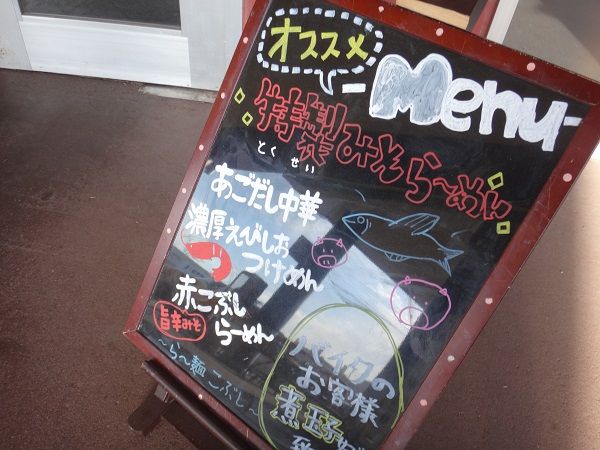 オススメ
Menu
特製みそらーめん
とくせい
あごだし中華
濃厚えびしお
つけめん
赤こぶし
旨辛みそ
らーめん
～らー麺こぶし～
バイクの
お客様
煮玉子